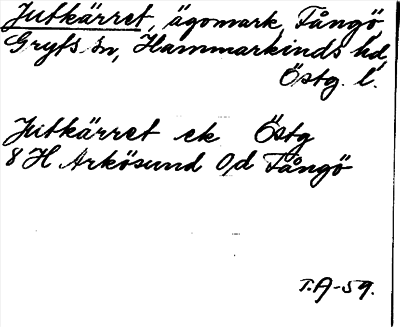 Jutkärret, ägomark, Fångö,
Gryts sn, Hammarkinds hd,
Östg. l.
Jutkärret ek Östg
8 H Arkösund 0d Fångö
T.A-59.